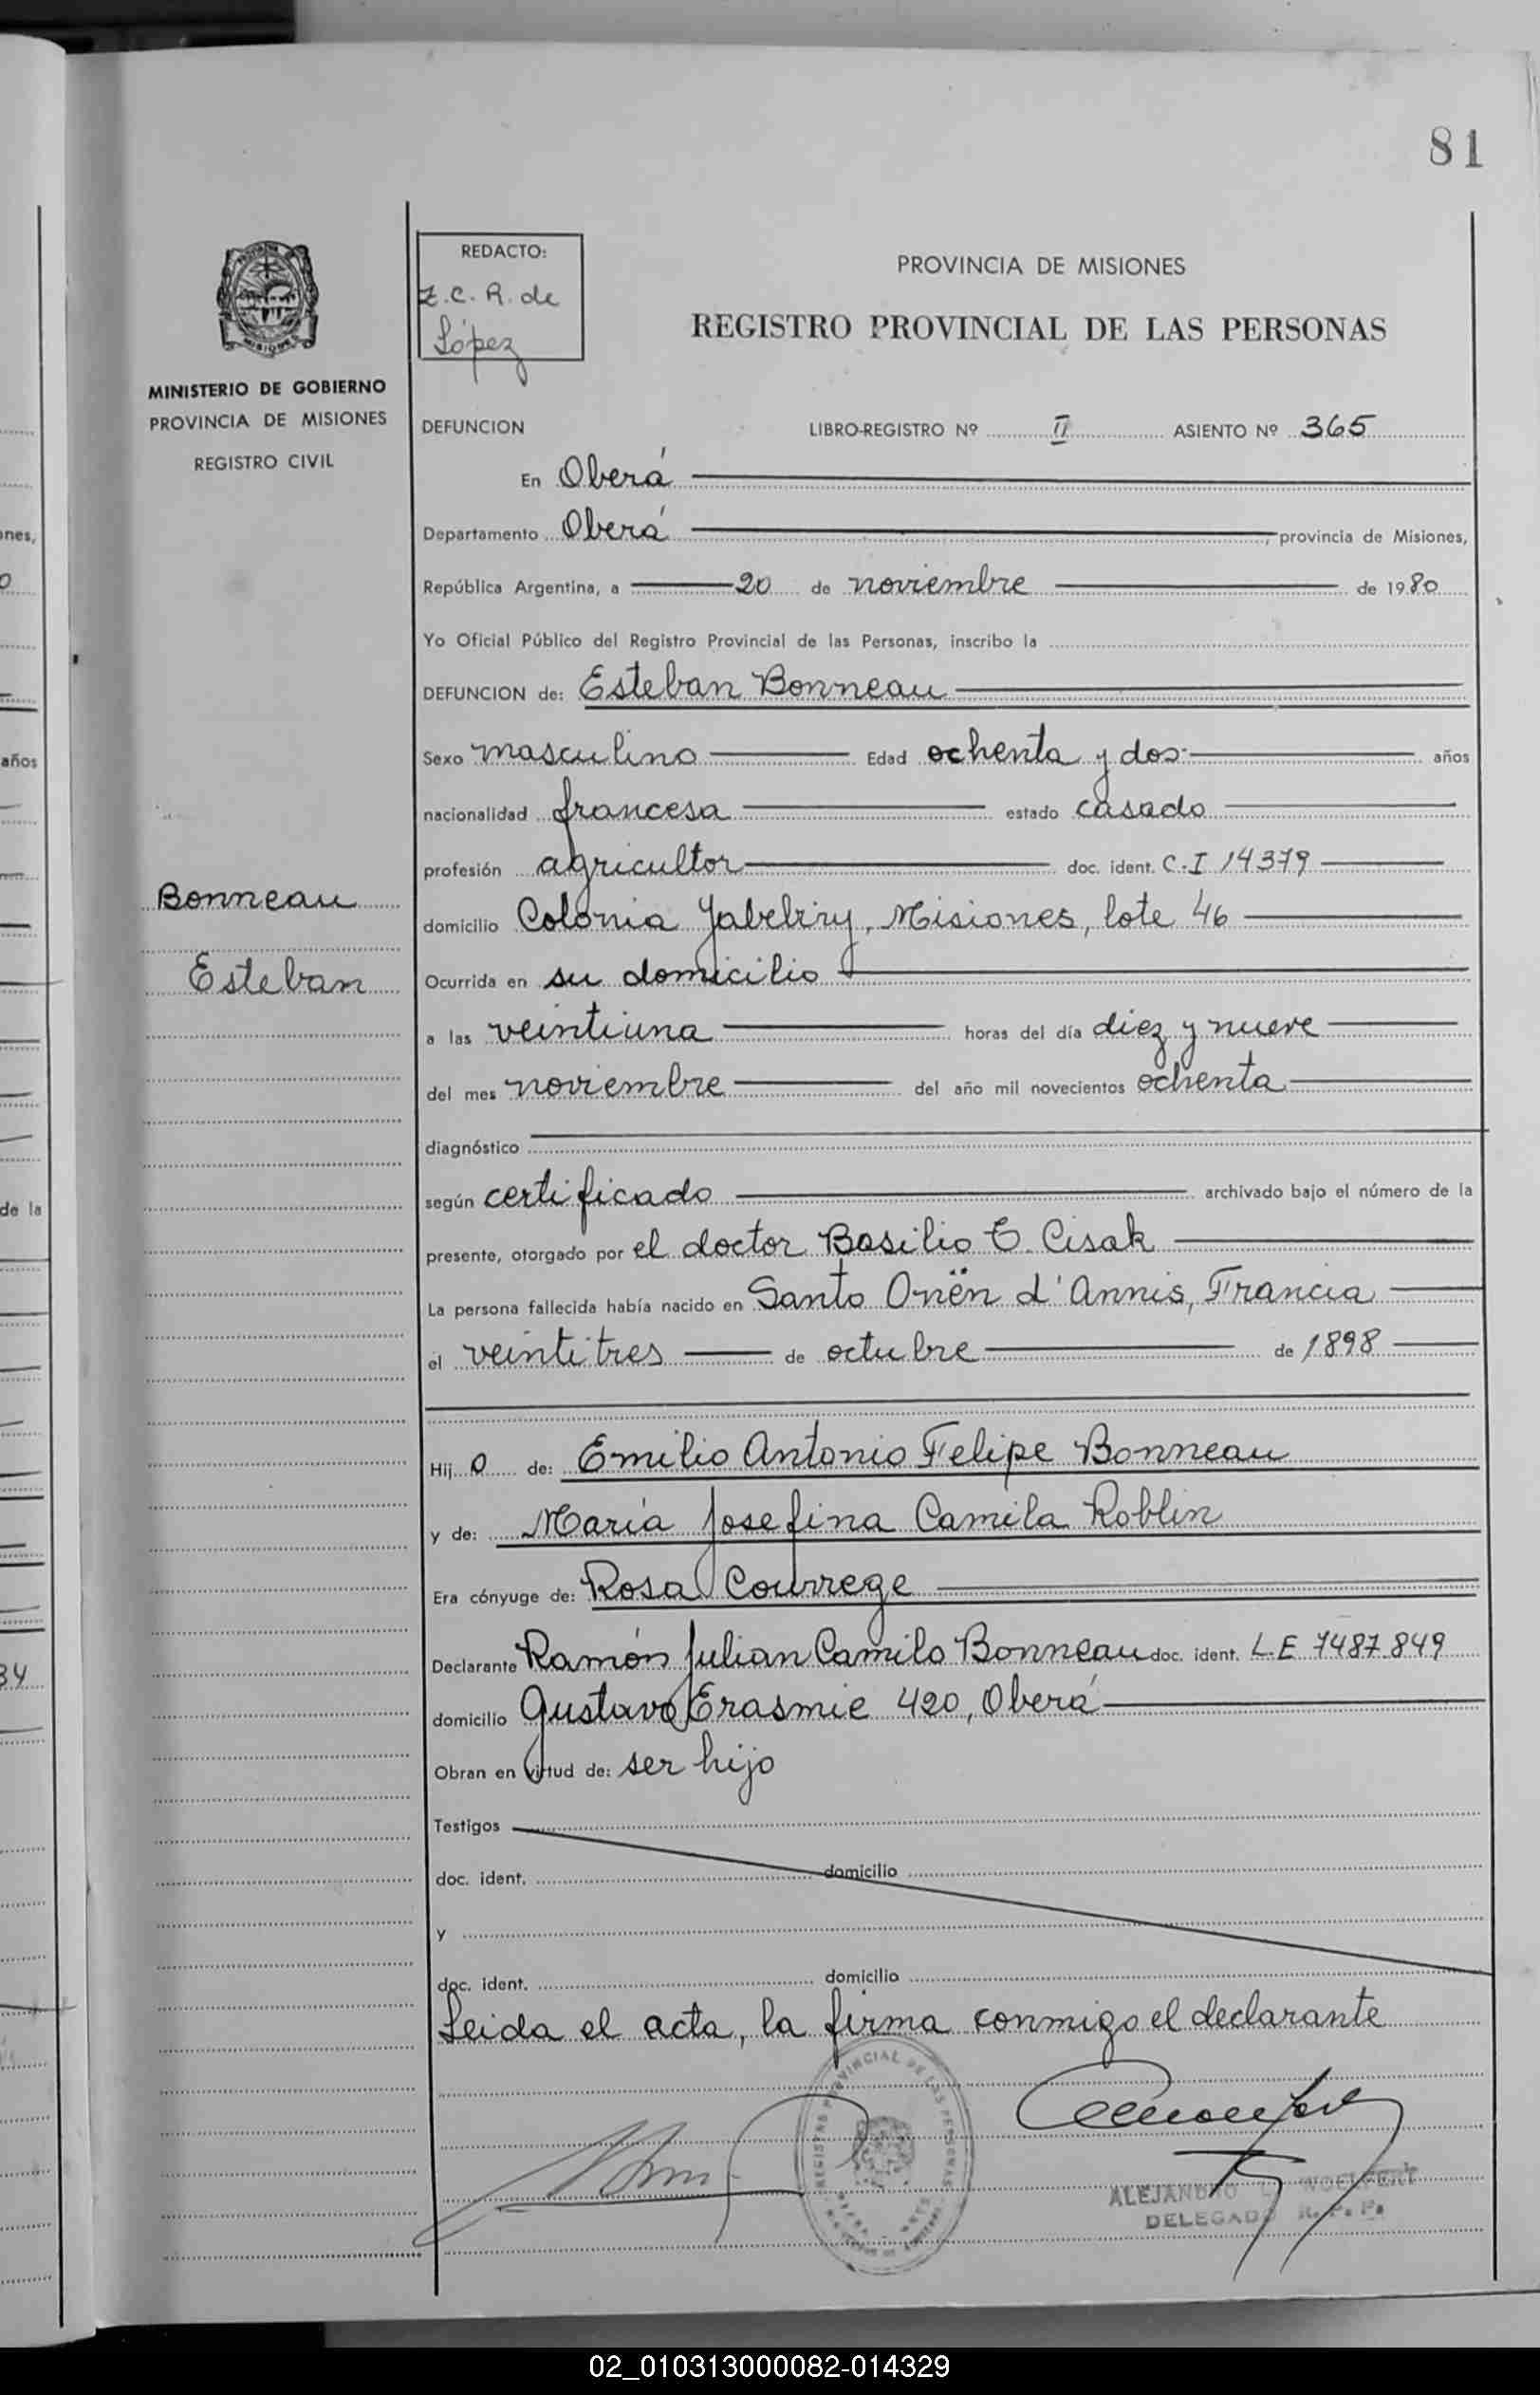 81
REDACTO:
Z.C.R. de
López
PROVINCIA DE MISIONES
REGISTRO PROVINCIAL DE LAS PERSONAS
MISIONES
MINISTERIO DE GOBIERNO
PROVINCIA DE MISIONES
REGISTRO CIVIL
DEFUNCION LIBRO-REGISTRO Nº II ASIENTO Nº 365
En Oberá
Departamento Oberá, provincia de Misiones,
República Argentina, a 20 de noviembre de 1980
Yo Oficial Público del Registro Provincial de las Personas, inscribo la
DEFUNCION de: Esteban Bonneau
Sexo masculino Edad ochenta y dos años
nacionalidad francesa estado casado
profesión agricultor doc. ident. C.I 14379
Bonneau
Esteban
domicilio Colonia Yabebiry, Misiones, lote 46
Ocurrida en su domicilio
a las veintiuna horas del día diez y nueve
del mes noviembre del año mil novecientos ochenta
diagnóstico
según certificado archivado bajo el número de la
presente, otorgado por el doctor Basilio E. Cisak
La persona fallecida había nacido en Santo Onën d'Annis, Francia
el veintitres de octubre de 1898
Hij o de: Emilio Antonio Felipe Bonneau
y de: María Josefina Camila Roblin
Era cónyuge de: Rosa Courrege
Declarante Ramón Julian Camilo Bonneau doc. ident. L.E 7487.849
domicilio Gustavo Erasmie 420, Oberá
Obran en virtud de: ser hijo
Testigos
doc. ident. domicilio
y
doc. ident. domicilio
Leida el acta, la firma conmigo el declarante
REGISTRO PROVINCIAL DE LAS PERSONAS
ALEJANDRO WOELFERT
DELEGADO R. P. P.
ones,
0
años
de la
34
02_010313000082-014329